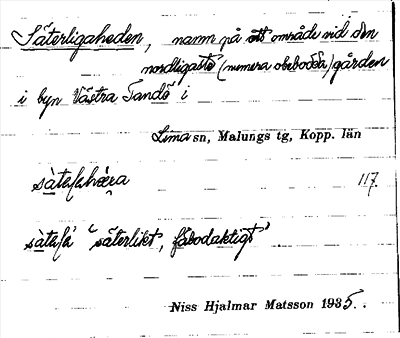 Säterligaheden, namn på ett område vid den
nordligaste (numera obebodda) gården
i byn Västra Tandö i
Lima sn, Malungs tg, Kopp. län
117.
"säterlikt, fäbodaktigt".
Niss Hjalmar Matsson 1935.